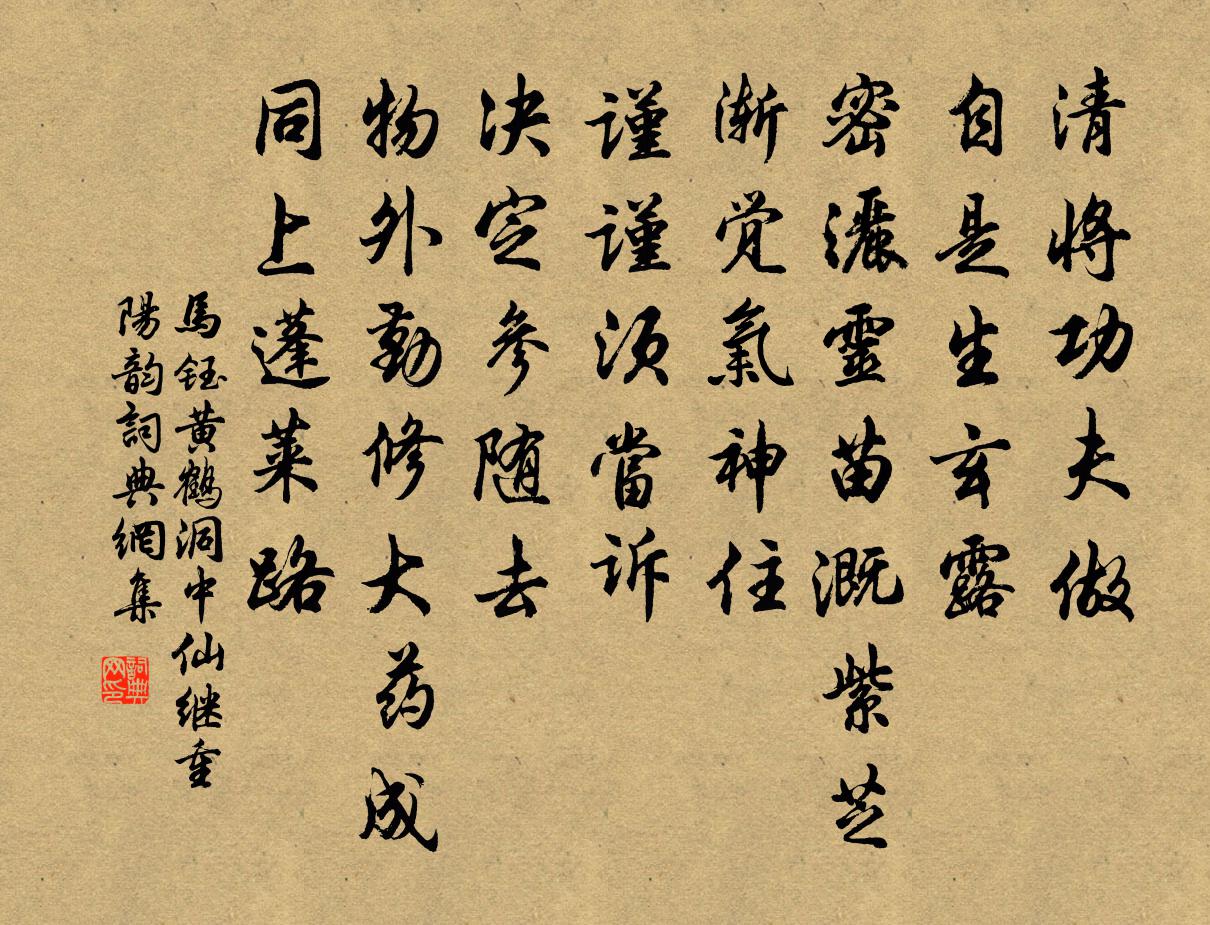 清將功夫做
自是生玄露
密灑靈苗溉紫芝
渐觉氣神住
謹謹須當訴
决定參随去
物外勤修大药成
同上蓬莱路
馬鈺黄鶴洞中仙继重
陽韵詞典網集
詞典网印